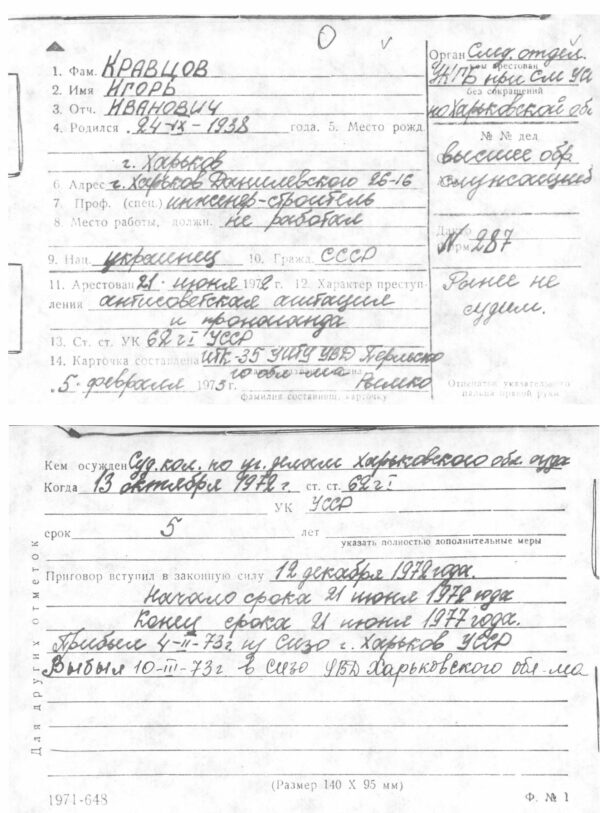 1. Фам. КРАВЦОВ
2. Имя ИГОРЬ
3. Отч. ИВАНОВИЧ
4. Родился 24-IX-1938 года. 5. Место рожд.
г. Харьков
6. Адрес г. Харьков Данилевского 26-16
7. Проф. (спец.) инженер-строитель
8. Место работы, должн. не работал
9. Нац. украинец 10. Гражд. СССР
11. Арестован 21 июня 1972 г. 12. Характер преступ-
ления антисоветская агитация
и пропаганда
13. Ст. ст. УК 62 ч I УССР
14. Карточка составлена ИТК-35 УИТУ УВД Пермско
го обл-ма
5 февраля 1973 г.
фамилия составивш. карточку
Орган След. отдел.
кем арестован
УКГБ при СМ УС
без сокращений
по Харьковской об
№ № дел
высшее обр
служащий
N 287
Ранее не
судим.
Отпечаток указательного
пальца правой руки
Кем осужден Суд. кол. по уг. делам Харьковского обл суда
Когда 13 октября 1972 г. ст. ст. 62 ч I
УК УССР
срок 5 лет
указать полностью дополнительные меры
Приговор вступил в законную силу 12 декабря 1972 года.
Начало срока 21 июня 1972 года
Конец срока 21 июня 1977 года.
Прибыл 4-II-73г. из Сизо г. Харьков УССР
Выбыл 10-III-73г в Сизо УВД Харьковского обл-ма
Для других отметок
(Размер 140 X 95 мм)
1971-648
Ф. № 1